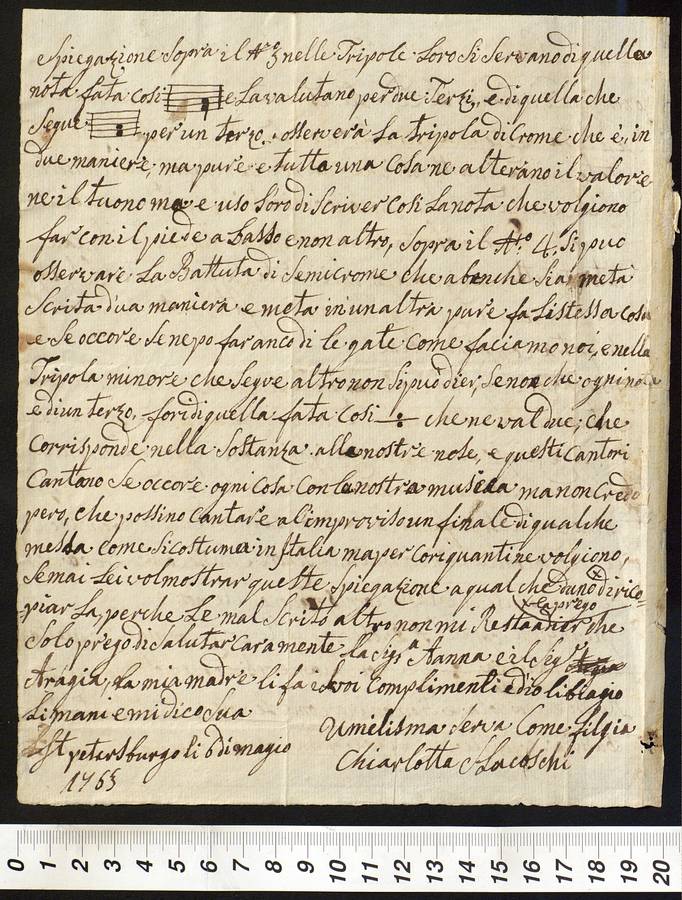 Spiegazione Sopra il No: 3 nelle Tripole Loro Si Servano di quella
nota fata Cosi e La valutano per due Terzi, e di quella che
Segue per un terzo. osserverà La tripola di Crome che è, in
due maniere, ma pure e tutto una Cosa ne alterano il valore
ne il tuono ma e uso Loro di Scriver Cosi La nota che volgiono
far con il piede a basso e non altro, Sopra il No. 4. Si può
osservare La Battuta di Semicrome che abenche Sia metà
Scrita d'ua maniera e meta in un altra pure fa Listessa cosa
e Se occore Se ne po far anco di le gate Come faciamo noi, e nella
Tripola minore che Segve altro non Si può dier, Se non che ogni nota
e di un terzo, fori di quella fata Cosi che ne val due, che
Corrisponde nella Sostanza alle nostre note, e questi Cantori
Cantano Se occore ogni Cosa Con la nostra musica ma non Credo
pero, che possino Cantare al improviso un finale di qualche
messa Come Si costuma in Italia ma per Cori quanti ne volgiono,
Se mai Lei vol mostrar queste Spiegazione a qual che duno di rico-
x La prego
piar La, perche Le mal Scrito altro non mi Resta a dier che
Solo prego di Salutar Caramente La Sigra Aanna e il Sigr
Aragia, La mia madre li fa i Suoi Complimenti ed io li biagio
Li mani e mi dico Sua
Umilisma Serva Come filgia
St petersburgo li 6 di magio
Chiarlotta Slacoschi
1765
0 1 2 3 4 5 6 7 8 9 10 11 12 13 14 15 16 17 18 19 20